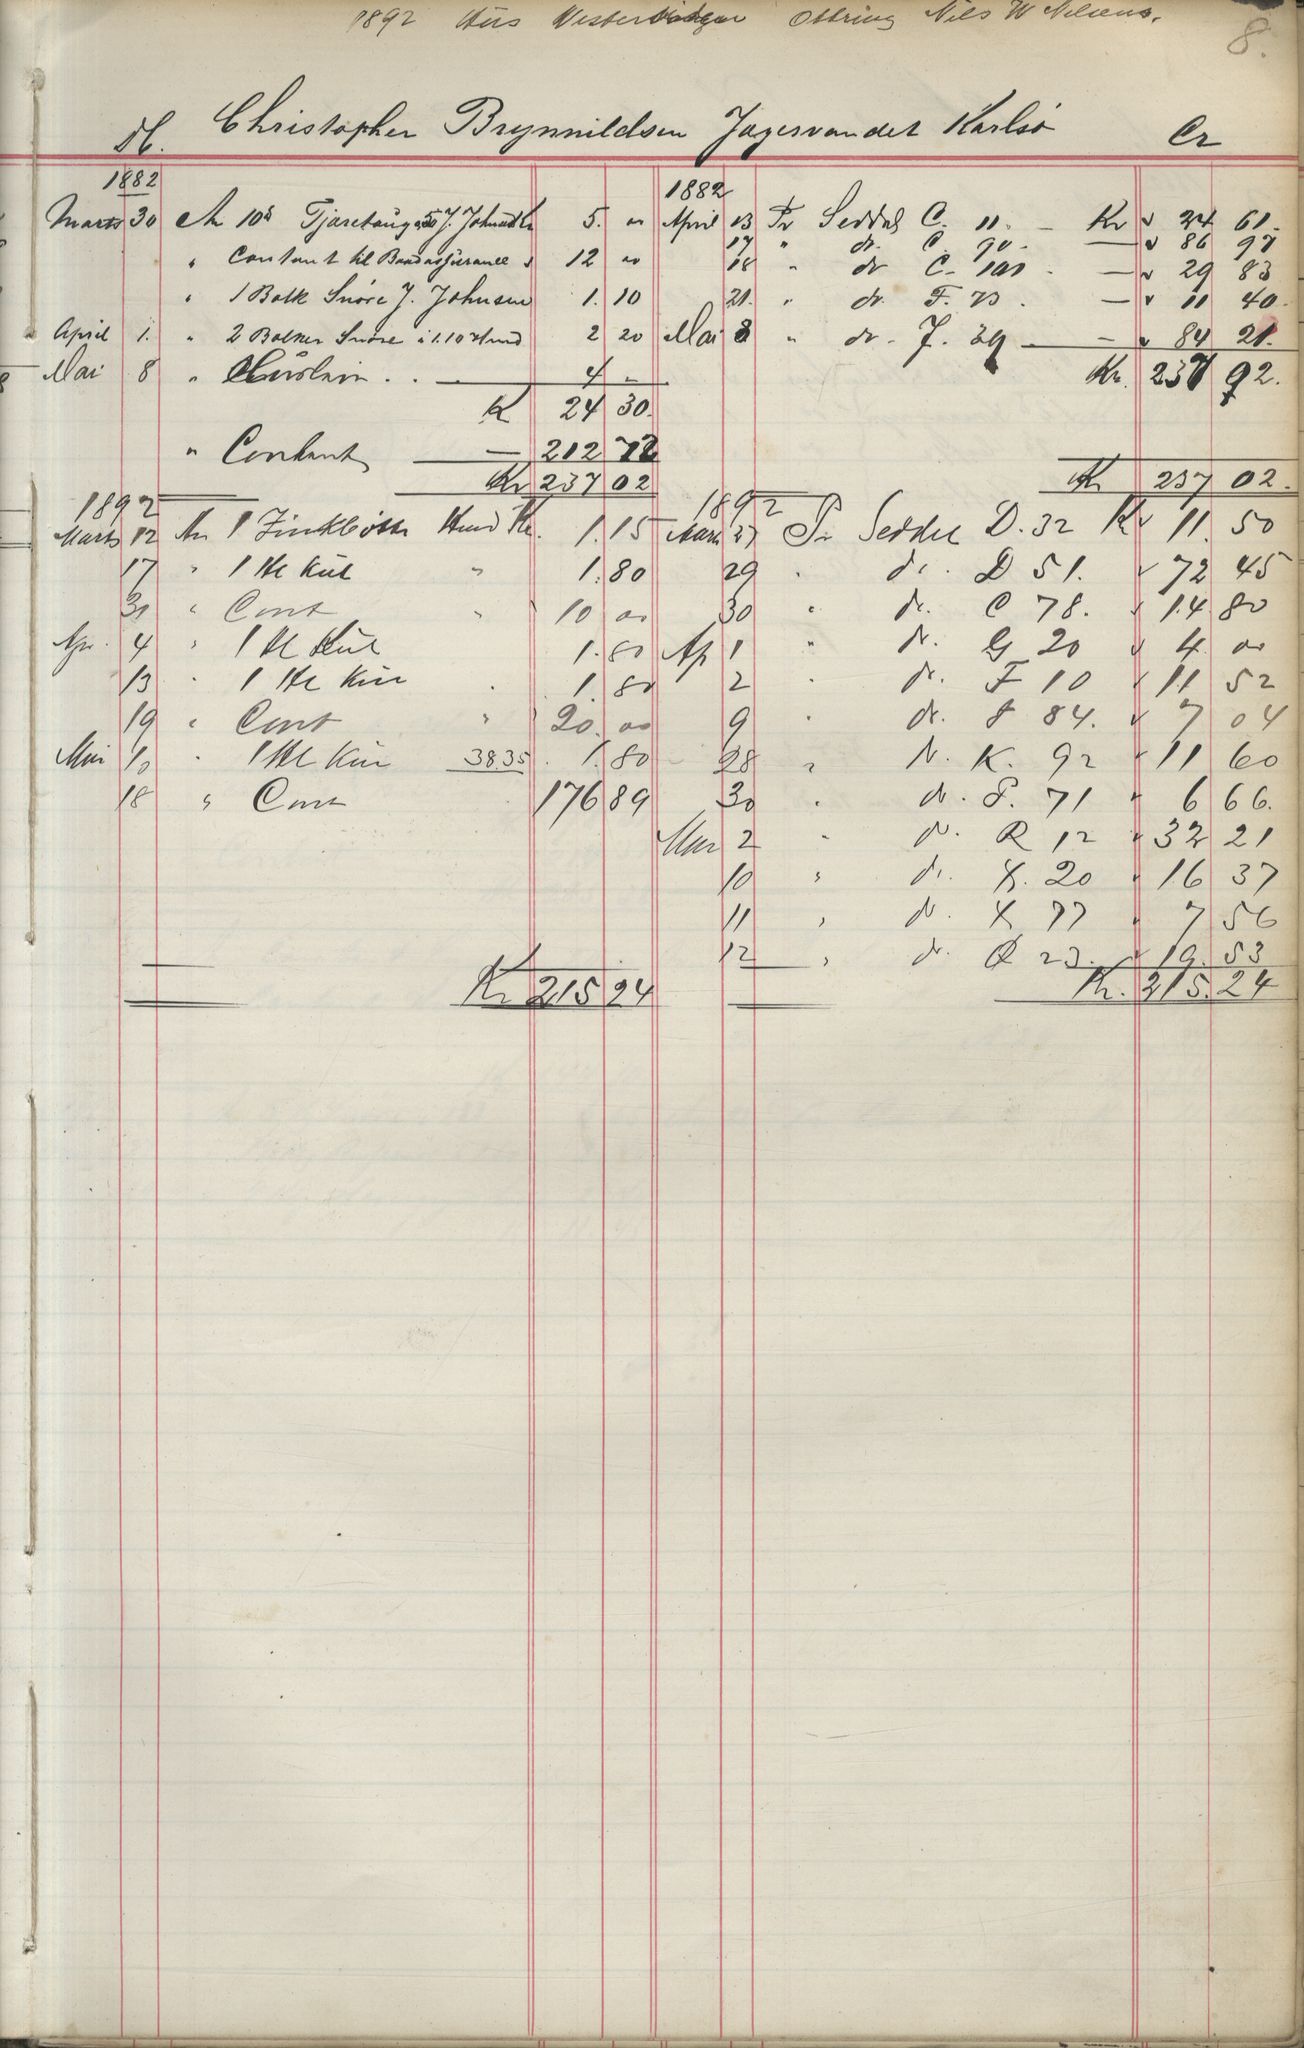 1892 Hus Ottring Nils W Nilsens.
8.
Christopher Brynnildsen Jagervandet Karlsø Cr
1882
Marts 30 An 10 J. Johnsen Kr 5. 00
" Contant til 12 00
" 1 Bolk Snöre J. Johnsen 1. 10
April 1. " 2 Bolker Snöre à 1.10 Hund 2 20
Mai 8 " Huslein 4 –
Kr 24 30.
" Contant — 212 72
Kr 237 02
1882
April 13 Pr Seddel C. 11. – Kr 24 61.
17 " do. C. 90. — 86 97
18 " do C. 100 — 29 83
21. " do. F. 73. — 11 40.
Mai 8 " do. J. 39 — 84 21.
Kr. 237 02.
Kr 237 02.
1892
Marts 12 An 1 Hund Kr. 1.15
17 " 1 Hl Kul " 1.80
31 " Cont " 10 00
Apr. 4 " 1 Hl Kul 1.80
13 " 1 Hl Kul " 1.80
19 " Cont " 20.00
Mai 10 " 1 Hl Kul 38.35 1.80
18 " Cont 176 89
Kr 215 24
1892
Marts 27 Pr Seddel D. 32 Kr 11. 50
29 " do. D 51. 72 45
30 " do. C 78. 14 80
Ap 1 " do. G 20 4. 00
2 " do. F 10 11 52
9 " do. F 84. 7 04
28 " do. K. 92 11 60
30 " do. P. 71 6 66.
Mai 2 " do. R 12 32 21
10 " do. X. 20 16 37
11 " do. X 77 7 56
12 " do. Q 23. 19. 53
Kr. 215. 24